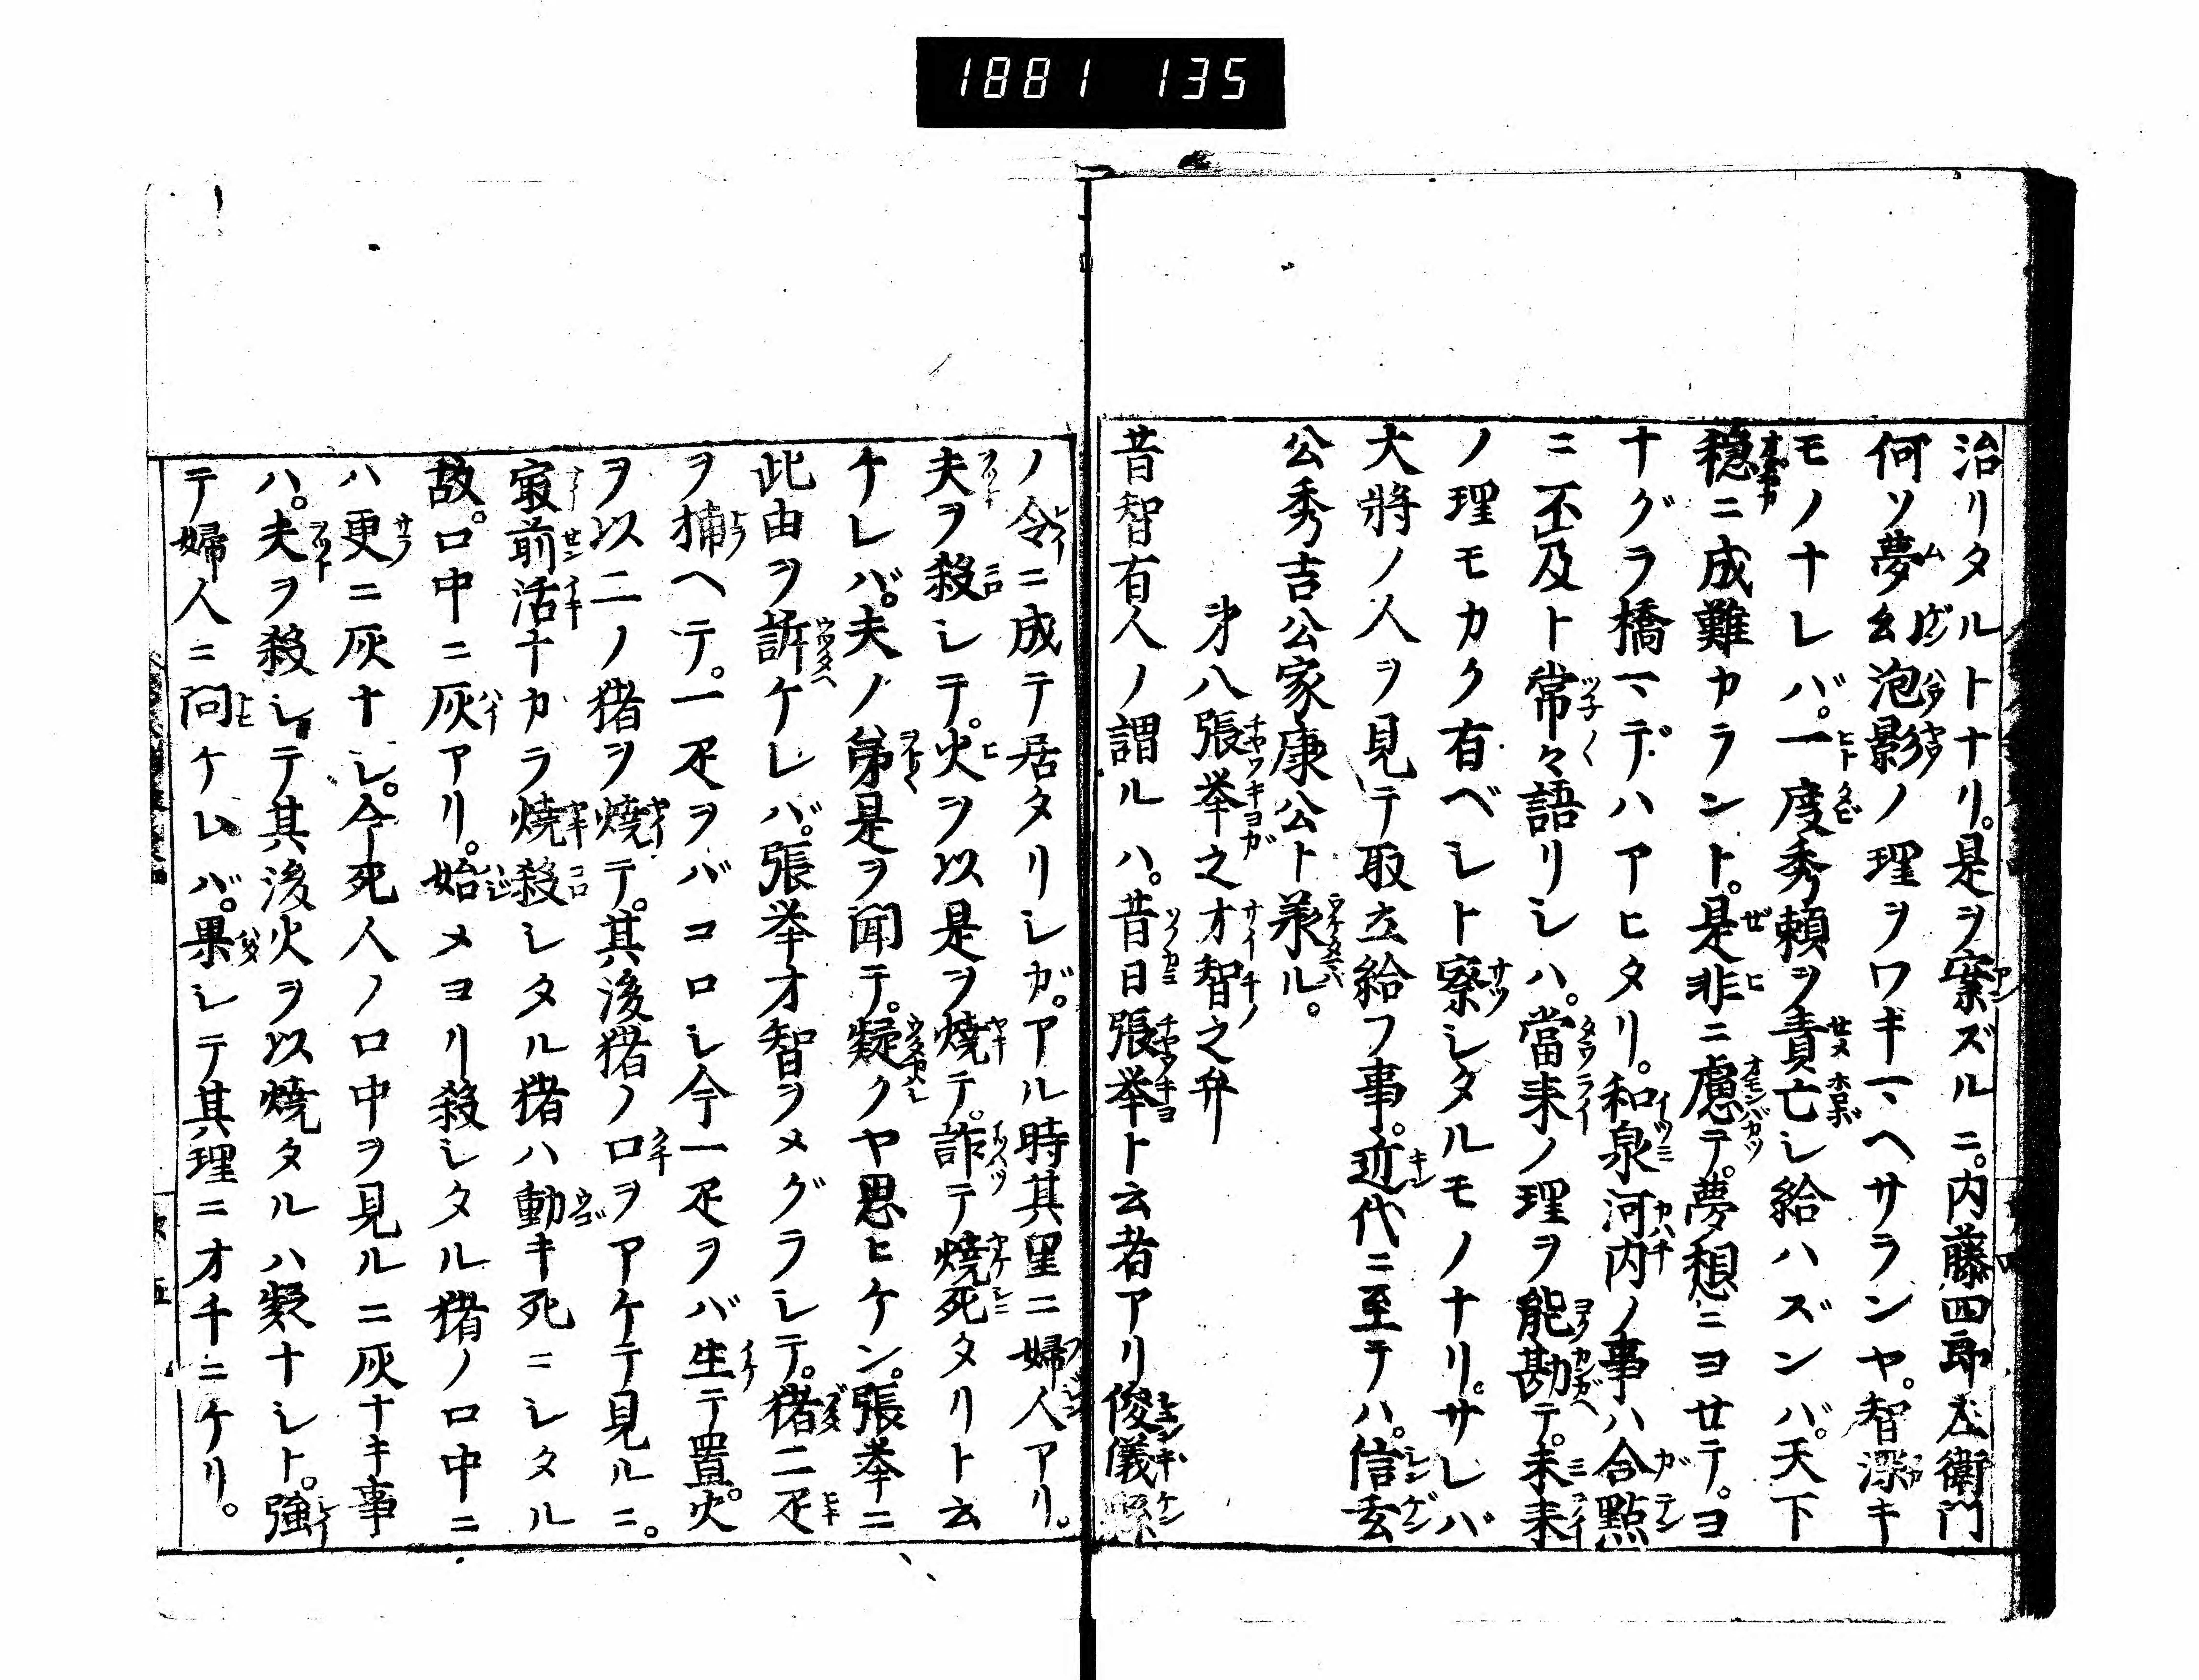 1881 135
治リタルトナリ。是ヲ案ズルニ。内藤四郎左衛門
何ソ夢幻泡影ノ理ヲワキマヘサランヤ。智深キ
モノナレバ。一度秀頼ヲ責亡シ給ハズンバ。天下
穏ニ成難カラント。是非ニ慮テ。夢想ニヨセテ。ヨ
ナグラ橋マデハアヒタリ。和泉河内ノ事ハ合點
ニ不及ト常々語リシハ。當来ノ理ヲ能勘テ。未来
ノ理モカク有ベシト察シタルモノナリ。サレバ
大將ノ人ヲ見テ取立給フ事。近代ニ至テハ。信玄
公秀吉公家康公ト承ル。
第八張挙之才智之弁
昔智有人ノ謂ルハ。昔日張挙ト云者アリ俊儀縣
ノ令ニ成テ居タリシガ。アル時其里ニ婦人アリ。
夫ヲ殺シテ。火ヲ以是ヲ焼テ。詐テ焼死タリト云
ケレバ。夫ノ弟是ヲ聞テ。疑クヤ思ヒケン。張挙ニ
此由ヲ訴ケレバ。張挙才智ヲメグラシテ。猪二疋
ヲ捕ヘテ。一疋ヲバコロシ今一疋ヲバ生テ置。火
ヲ以二ノ猪ヲ焼テ。其後猪ノ口ヲアケテ見ルニ。
最前活ナカラ焼殺シタル猪ハ動キ死ニシタル
故。口中ニ灰アリ。始メヨリ殺シタル猪ノ口中ニ
ハ更ニ灰ナシ。今死人ノ口中ヲ見ルニ灰ナキ事
ハ。夫ヲ殺シテ其後火ヲ以焼タルハ疑ナシト。強
テ婦人ニ問ケムバ。果シテ其理ニオチニケリ。